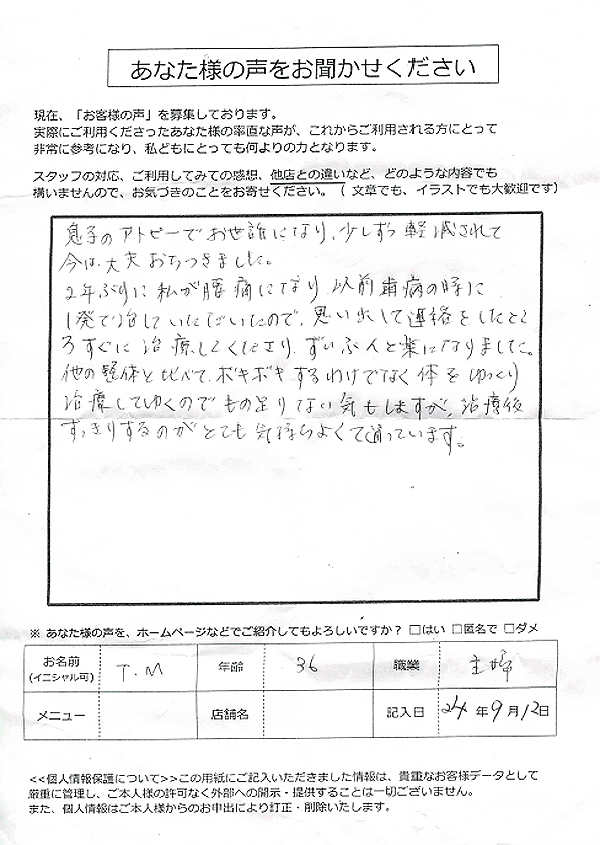 あなた様の声をお聞かせください
現在、「お客様の声」を募集しております。
実際にご利用くださったあなた様の率直な声が、これからご利用される方にとって
非常に参考になり、私どもにとっても何よりの力となります。
スタッフの対応、ご利用してみての感想、他店との違いなど、どのような内容でも
構いませんので、お気づきのことをお寄せください。（ 文章でも、イラストでも大歓迎です）
息子のアトピーでお世話になり、少しずつ軽減されて
今は大丈夫おちつきました。
2年ぶりに私が腰痛になり、以前歯病の時に
1発で治していただいたので、思い出して連絡をしたとこ
ろすぐに治療してくださり、ずいぶんと楽になりました。
他の整体と比べて、ボキボキするわけでなく体をゆっくり
治療してゆくのでもの足りない気もしますが、治療後
すっきりするのがとても気持ちよくて通っています。
※ あなた様の声を、ホームページなどでご紹介してもよろしいですか？ □はい □匿名で □ダメ
お名前 (イニシャル可) T.M 年齢 36 職業 主婦
メニュー 店舗名 記入日 24年9月12日
<<個人情報保護について>>この用紙にご記入いただきました情報は、貴重なお客様データとして
厳重に管理し、ご本人様の許可なく外部への開示・提供することは一切ございません。
また、個人情報はご本人様からのお申出により訂正・削除いたします。